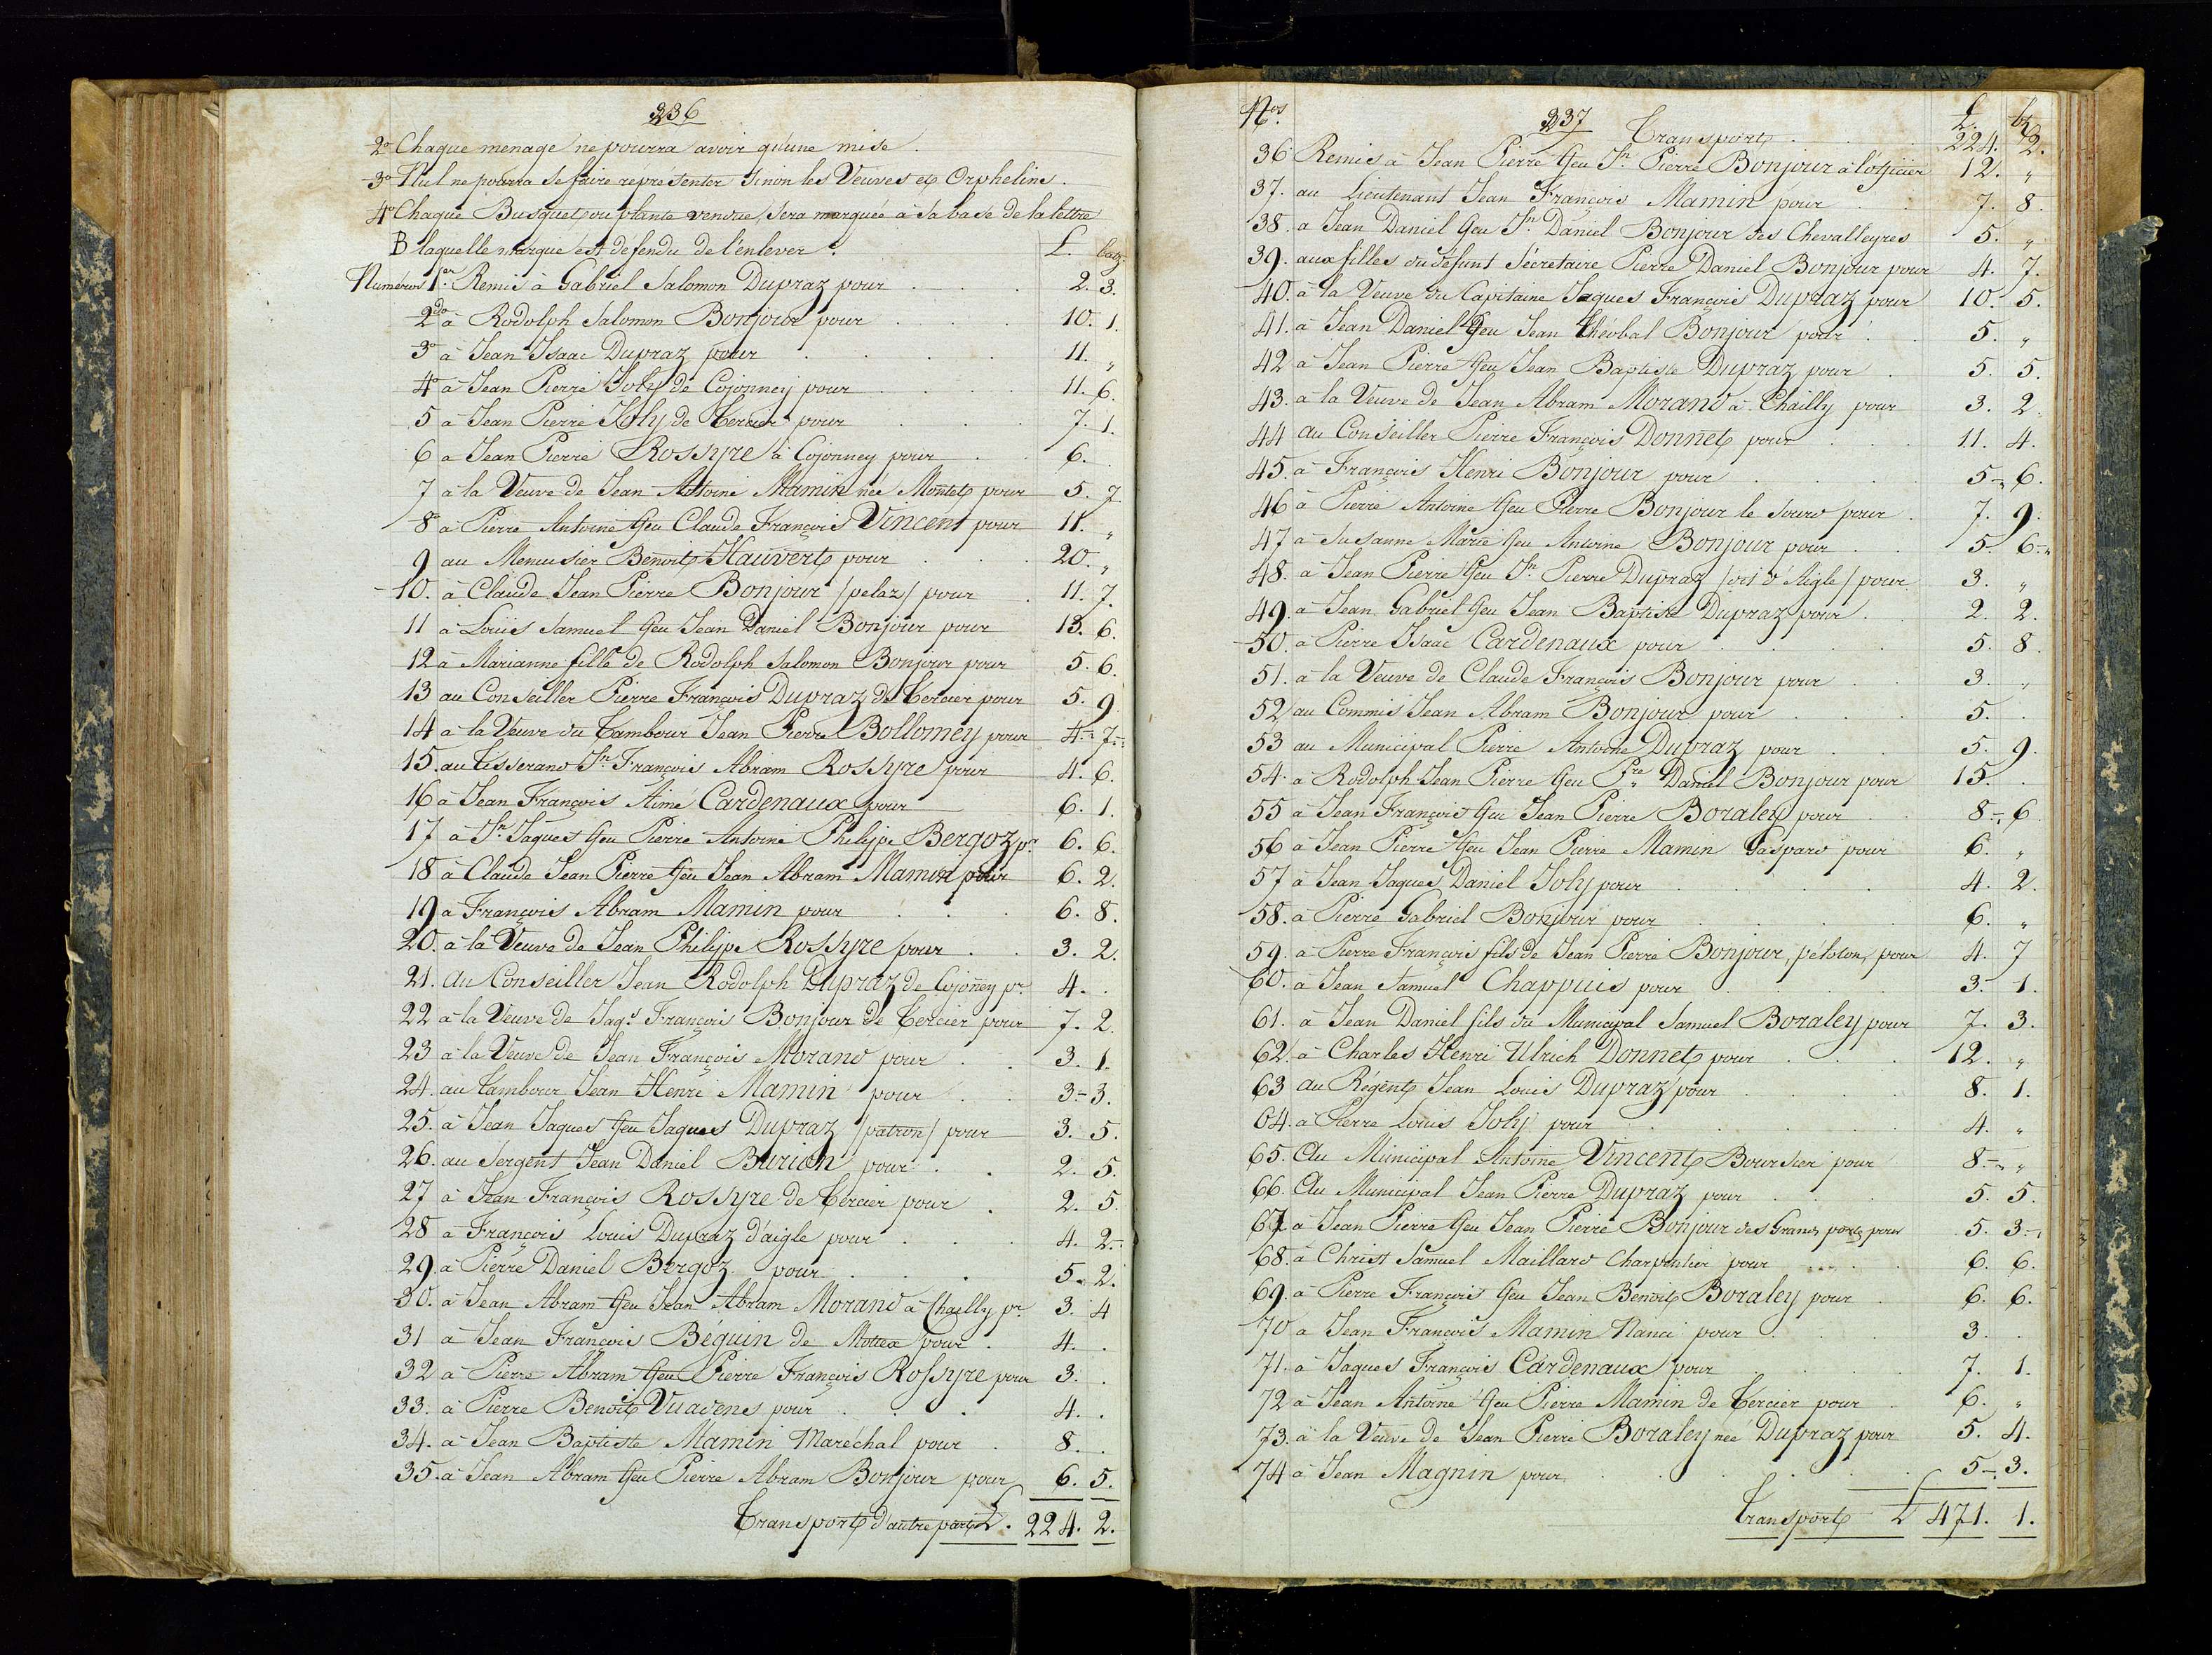 236
2º Chaque menage ne pourra avoir qu'une mise.
3º Nul ne pourra se faire representer sinon les Veuves et Orphelins.
4º Chaque Busquet, ou plante vendue, sera marquée à sa base de la lettre
B laquelle marque est défendu de l'enlever. £. batz.
Numéros 1er. Remis à Gabriel Salomon Dupraz pour 2. 3.
2do à Rodolph Salomon Bonjour pour 10. 1.
3º à Jean Isaac Dupraz pour 11. "
4º à Jean Pierre Joly de Cojonney pour 11. 6.
5 à Jean Pierre Joly de Tercier pour 7. 1.
6 à Jean Pierre Rossyre à Cojonney pour 6. .
7 à la Veuve de Jean Antoine Mamin née Montet pour 5. 7
8º à Pierre Antoine feu Claude François Vincent pour 11. "
9 au Menuisier Benoit Hauvert pour 20. "
10. à Claude Jean Pierre Bonjour /pelaz/ pour 11. 7.
11 à Louis Samuel feu Jean Daniel Bonjour pour 13. 6.
12 à Marianne fille de Rodolph Salomon Bonjour pour 5. 6.
13 au Conseiller Pierre François Dupraz de Tercier pour 5. 9
14 à la Veuve du Tambour Jean Pierre Bollomey pour 4. 7.
15. au Tisserand Jn François Abram Rossyre pour 4. 6.
16 à Jean François Aimé Cardenaux pour 6. 1.
17 à Jn Jaques feu Pierre Antoine Philippe Bergoz pr 6. 6.
18 à Claude Jean Pierre feu Jean Abram Mamin pour 6. 2.
19 à François Abram Mamin pour 6. 8.
20. à la Veuve de Jean Philippe Rossyre pour 3. 2.
21. Au Conseiller Jean Rodolph Dupraz de Cojonney pr 4. .
22 à la Veuve de Jaqs François Bonjour de Tercier pour 7. 2.
23 à la Veuve de Jean François Morand pour 3. 1.
24. au tambour Jean Henri Mamin pour 3. 3.
25. à Jean Jaques feu Jaques Dupraz /patron/ pour 3. 5.
26. au Sergent Jean Daniel Burion pour 2. 5.
27 à Jean François Rossyre de Tercier pour 2. 5.
28 à François Louis Dupraz d'aigle pour 4. 2.
29. à Pierre Daniel Bergoz pour 5. 2.
30. à Jean Abram feu Jean Abram Morand à Chailly pr 3. 4
31 à Jean François Béguin de Mottex pour 4. .
32 à Pierre Abram feu Pierre François Rossyre pour 3. .
33. à Pierre Benoit Vuadens pour 4. .
34. à Jean Baptiste Mamin Maréchal pour 8. .
35. à Jean Abram feu Pierre Abram Bonjour pour 6. 5.
Transport d'autre part £. 224. 2.
Nos. 237 £. bz
Transport 224. 2.
36 Remis à Jean Pierre feu Jn Pierre Bonjour à l'officier 12. "
37. au Lieutenant Jean François Mamin pour 7. 8.
38. à Jean Daniel feu Jn Daniel Bonjour des Chevalleyres 5. "
39. aux filles du défunt Sécretaire Pierre Daniel Bonjour pour 4. 7.
40. à la Veuve du Capitaine Jaques François Dupraz pour 10. 5.
41. à Jean Daniel feu Jean Théobal Bonjour pour 5. "
42 à Jean Pierre feu Jean Baptiste Dupraz pour 5. 5.
43. à la Veuve de Jean Abram Morand à Chailly pour 3. 2.
44 au Conseiller Pierre François Donnet pour 11. 4.
45. à François Henri Bonjour pour 5. 6.
46 à Pierre Antoine feu Pierre Bonjour le sourd pour 7. 9.
47 à Susanne Marie feu Antoine Bonjour pour 5. 6.
48. à Jean Pierre feu Jn Pierre Dupraz /dit d'Aigle/ pour 3. "
49. à Jean Gabriel feu Jean Baptiste Dupraz pour 2. 2.
50. à Pierre Isaac Cardenaux pour 5. 8.
51. à la Veuve de Claude François Bonjour pour 3. "
52 au Commis Jean Abram Bonjour pour 5. .
53 au Municipal Pierre Antoine Dupraz pour 5. 9.
54. à Rodolph Jean Pierre feu Pre Daniel Bonjour pour 15. .
55 à Jean François feu Jean Pierre Boraley pour 8. 6
56 à Jean Pierre feu Jean Pierre Mamin Gaspard pour 6. "
57 à Jean Jaques Daniel Joly pour 4. 2.
58. à Pierre Gabriel Bonjour pour 6. "
59. à Pierre François fils de Jean Pierre Bonjour, peloton, pour 4. 7
60. à Jean Samuel Chappuis pour 3. 1.
61. à Jean Daniel fils du Municipal Samuel Boraley pour 7. 3.
62 à Charles Henri Ulrich Donnet pour 12. "
63 au Régent Jean Louis Dupraz pour 8. 1.
64. à Pierre Louis Joly pour 4. "
65. Au Municipal Antoine Vincent Boursier pour 8. "
66. Au Municipal Jean Pierre Dupraz pour 5. 5.
67 à Jean Pierre feu Jean Pierre Bonjour des Grands pour 5. 3.
68. à Christ Samuel Maillard Charpentier pour 6. 6.
69. à Pierre François feu Jean Benoit Boraley pour 6. 6.
70 à Jean François Mamin Nanci pour 3. .
71. à Jaques François Cardenaux pour 7. 1.
72 à Jean Antoine feu Pierre Mamin de Tercier pour 6. "
73. à la Veuve de Jean Pierre Boraley née Dupraz pour 5. 4.
74 à Jean Magnin pour 5. 3.
Transport £ 471. 1.